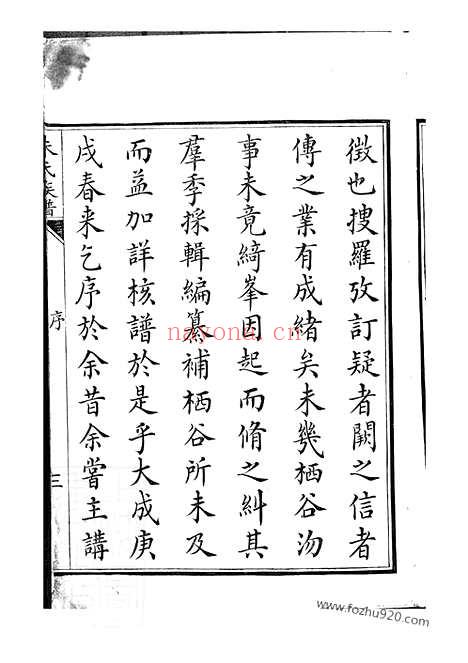 徵也搜羅攷訂疑者闕之信者
傳之業有成緒矣未幾栖谷沕
事未竟綺峯因起而脩之糾其
羣季採輯編纂補栖谷所未及
而益加詳核譜於是乎大成庚
戌春来乞序於余昔余嘗主講
朱氏族譜
序
三
nayona.cn
www.fozhu920.com